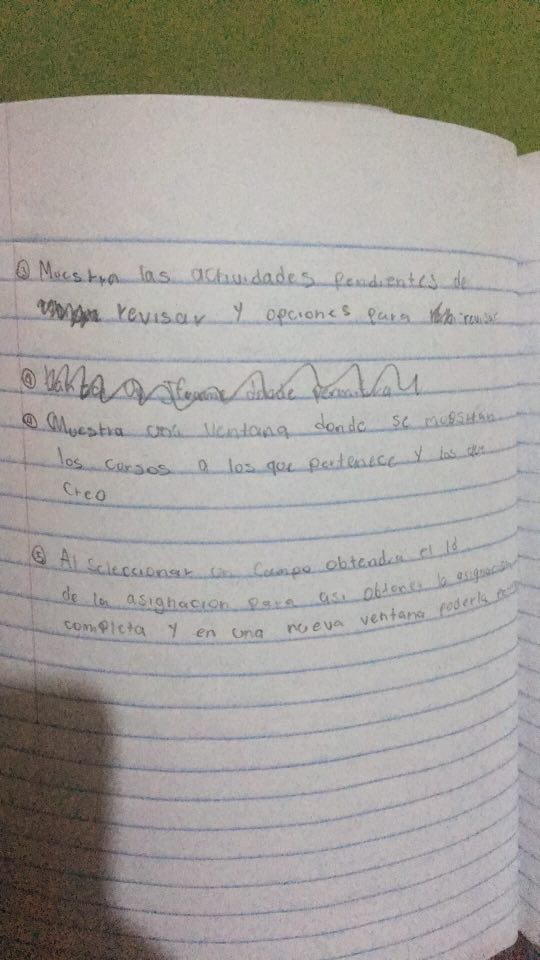 ③ Muestra las actividades pendientes de
revisar y opciones para revisar
④
④ Muestra una ventana donde se muestran
los cursos a los que pertenece y los que
Creo
⑤ Al seleccionar un campo obtendra el Id
de la asignacion para asi obtener la asignacion
completa y en una nueva ventana poderla